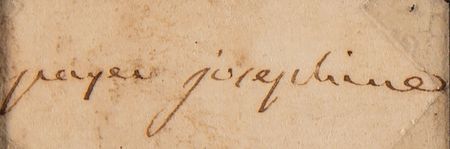 payer josephine